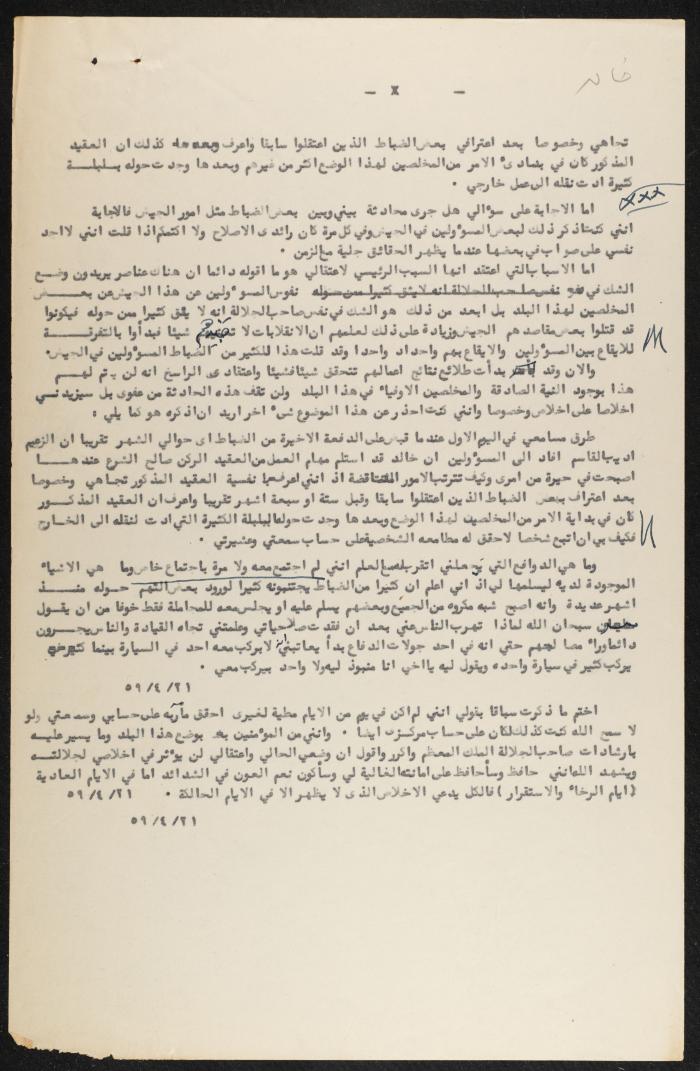 خالد
- x -
تجاهي وخصوصا بعد اعترافي بعض الضباط الذين اعتقلوا سابقا واعرف كذلك ان العقيد
المذكور كان في بادئ الامر من المخلصين لهذا الوضع اكثر من غيرهم وبعدها وجدت حوله بلبلة
كثيرة ادت نقله الى عمل خارجي ٠
xxx
اما الاجابة على سؤالي هل جرى محادثة بيني وبين بعض الضباط مثل امور الجيش فالاجابة
انني كنت اذكر ذلك لبعض المسؤولين في الجيش وفي كل مرة كان رائدى الاصلاح ولا اكتمكم اذا قلت انني لا اجد
نفسي على صواب في بعضها عندما يظهر الحقائق جلية مع الزمن ٠
اما الاسباب التي اعتقد انها السبب الرئيسي لاعتقالي هو ما اقوله دائما ان هناك عناصر يريدون وضع
الشك في نفوس المسؤولين عن هذا الجيش عن بعض
المخلصين لهذا البلد بل ابعد من ذلك هو الشك في نفس صاحب الجلالة انه لا يثق كثيرا ممن حوله فيكونوا
قد قتلوا بعض مقاصدهم الجيش وزيادة على ذلك لعلمهم ان الانقلابات لا تجديهم شيئا فبدأوا بالتفرقة
للايقاع بين المسؤولين والايقاع بهم واحدا واحدا وقد قلت هذا للكثير من الضباط المسؤولين في الجيش
والان وقد بدأت طلائع نتائج اعمالهم تتحقق شيئا فشيئا واعتقادى الراسخ انه لن يتم لهم
هذا بوجود النية الصادقة والمخلصين الاوفياء في هذا البلد ولن تقف هذه الحادثة من عضوى بل سيزيدني
اخلاصا على اخلاص وخصوصا وانني كنت احذر عن هذا الموضوع شيء اخر اريد ان اذكره هو كما يلي :
طرق مسامعي في اليوم الاول عندما قبض على الدفعة الاخيرة من الضباط اى حوالي الشهر تقريبا ان الزعيم
اديب القاسم افاد الى المسؤولين ان خالد قد استلم مهام العمل من العقيد الركن صالح الشرع عندها
اصبحت في حيرة من امرى وكيف تترتب الامور المتناقضة اذ انني اعرف نفسية العقيد المذكور تجاهي وخصوصا
بعد اعتراف بعض الضباط الذين اعتقلوا سابقا وقبل ستة او سبعة اشهر تقريبا واعرف ان العقيد المذكور
كان في بداية الامر من المخلصين لهذا الوضع وبعدها وجدت حوله البلبلة الكثيرة التي ادت لنقله الى الخارج
فكيف بي ان اتبع شخصا لاحقق له مطامعه الشخصية على حساب سمعتي وعشيرتي ٠
وما هي الدوافع التي تجعلني اتقرب له مع العلم انني لم اجتمع معه ولا مرة باجتماع خاص وما هي الاشياء
الموجودة لديه ليسلمها لي اذ انني اعلم ان كثيرا من الضباط يجتنبونه كثيرا لورود بعض التهم حوله منذ
اشهر عديدة وانه اصبح شبه مكروه من الجميع وبعضهم يسلم عليه او يجلس معه للمجاملة فقط خوفا من ان يقول
سبحان الله لماذا تهرب الناس عني بعد ان فقدت صلاحياتي وعلمتني تجاه القيادة والناس يجرون
دائما وراء مصالحهم حتى انه في احد جولات الدفاع بدأ يعاتبني لا يركب معه احد في السيارة بينما
يركب كثير في سيارة واحده ويقول ليه يا اخي انا منبوذ ليه ولا واحد يركب معي ٠
٥٩/٤/٢١
اختم ما ذكرت سباقا بقولي انني لم اكن في يوم من الايام مطية لغيرى احقق مآربه على حسابي وسمعتي ولو
لا سمح الله كنت كذلك لكان على حساب مركزه ايضا ٠ وانني من المؤمنين بعد بوضع هذا البلد وما يسير عليه
بارشادات صاحب الجلالة الملك المعظم واكرر واقول ان وضعي الحالي واعتقالي لن يؤثر في اخلاصي لجلالته
ويشهد الله انني حافظ وسأحافظ على امانته الغالية لي وسأكون نعم العون في الشدائد اما في الايام العادية
(ايام الرخاء والاستقرار) فالكل يدعي الاخلاص الذى لا يظهر الا في الايام الحالكة ٠ ٥٩/٤/٢١
٥٩/٤/٢١